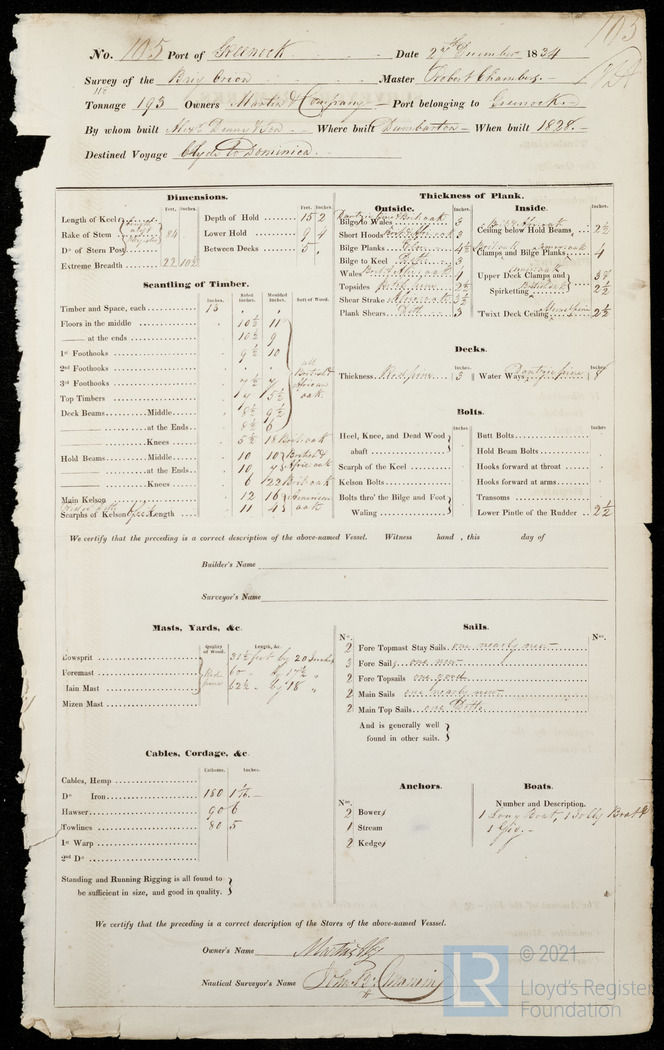 105
No. 105 Port of Greenock Date 2nd December 1834
Survey of the Brig Orion Master Robert Chambers
Tonnage 193 Owners Martin & Company Port belonging to Greenock
By whom built Alexr Denny & Son Where built Dumbarton When built 1828
Destined Voyage Clyde to Dominica
Dimensions.
Feet. Inches.
Length of Keel
Rake of Stem 84
Do of Stern Post
Extreme Breadth 22 10½
Feet. Inches.
Depth of Hold 15 2
Lower Hold 9 4
Between Decks 5
Scantling of Timber.
Inches. Sided Inches. Moulded Inches. Sort of Wood.
Timber and Space, each 13
Floors in the middle 10½ 11
—— at the ends 10½ 9
1st Foothooks 9½ 10
2nd Foothooks
3rd Foothooks 7½ 7
Top Timbers 5½
Deck Beams Middle 8½ 9½
—— at the Ends 8½ 6
—— Knees 5½ 18
all British & African oak
Hold Beams Middle 10 10 British &
—— at the Ends 10 Afric oak
—— Knees 6 122 Brit oak
Main Kelson 12 16 American
Scarphs of Kelson Length 11 oak
Thickness of Plank.
Outside. Inches
Bilge to Wales 3
Short Hoods 3
Bilge Planks 4½
Bilge to Keel Ditto 3
Wales
Topsides 2½
Shear Strake 3½
Plank Shears Ditto 3
Inside. Inches.
Ceiling below Hold Beams 2½
Clamps and Bilge Planks 4
Upper Deck Clamps and 3
Spirketting 2½
'Twixt Deck Ceiling 2½
Decks.
Thickness Red pine 3 Water Ways
Bolts.
Inches
Heel, Knee, and Dead Wood
abaft
Scarph of the Keel
Kelson Bolts
Bolts thro' the Bilge and Foot
Waling
Inches
Butt Bolts
Hold Beam Bolts
Hooks forward at throat
Hooks forward at arms
Transoms
Lower Pintle of the Rudder 2½
We certify that the preceding is a correct description of the above-named Vessel. Witness hand , this day of
Builder's Name
Surveyor's Name
Masts, Yards, &c.
Quality of Wood. Length, &c.
owsprit 31½ feet by 20 Inches
Foremast 60 by 17½ "
Iain Mast 62½ by 18 "
Mizen Mast
Red pine
Sails.
No. No.
2 Fore Topmast Stay Sails one nearly new
3 Fore Sails one new
2 Fore Topsails one good
2 Main Sails one nearly new
2 Main Top Sails one Ditto
And is generally well
found in other sails.
Cables, Cordage, &c.
Fathoms. Inches.
Cables, Hemp
Do Iron 180
Hawser 90 6
Towlines 80 5
1st Warp
2nd Do
Standing and Running Rigging is all found to
be sufficient in size, and good in quality.
Anchors.
No.
2 Bowers
1 Stream
2 Kedges
Boats.
Number and Description.
1 Long Boat, 1 Jolly Boat &
1 Gig
We certify that the preceding is a correct description of the Stores of the above-named Vesssel.
Owner's Name Martin &
Nautical Surveyor's Name
LR © 2021
Lloyd's Register
Foundation